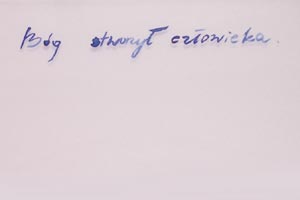 Bóg stworzył człowieka.